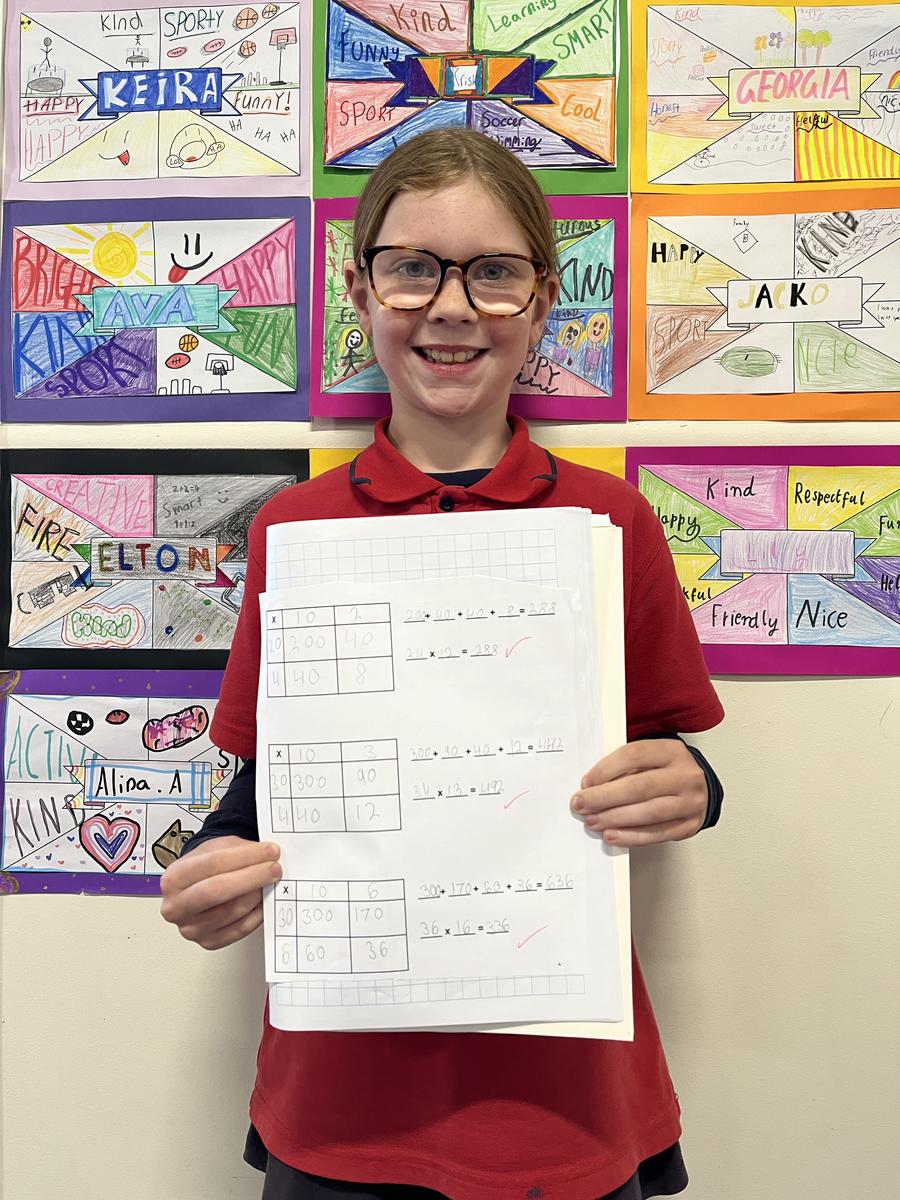 Kind
SPORTY
KEIRA
HAPPY
Funny!
HAPPY
HA HA HA
LOL
HA
Kind
Learning
FUNNY
SMART
Krish
SPORT
Cool
Soccer
Swimming
Kind
Happy
SPORTY
Friendly
GEORGIA
Honest
Sweet
Helpful
BRIGHT
HAPPY
AVA
KIND
FUN
SPORT
KIND
HAPPY
Family
KIND
HAPPY
JACKO
SPORT
CREATIVE
2+2=4
Smart
1+1=2
FIRE
ELTON
Kind
Kind
Respectful
Happy
Fun
Friendly
Nice
ACTIV
Alina.A
KIND
x 10 2
20 200 40
4 40 8
200+ 40 + 40 + 8 = 288
24 x 12 = 288
x 10 3
30 300 90
4 40 12
300+ 90 + 40 + 12 = 442
34 x 13 = 442
x 10 6
30 300 170
6 60 36
300+ 170+ 60 + 36= 636
36 x 16 = 336